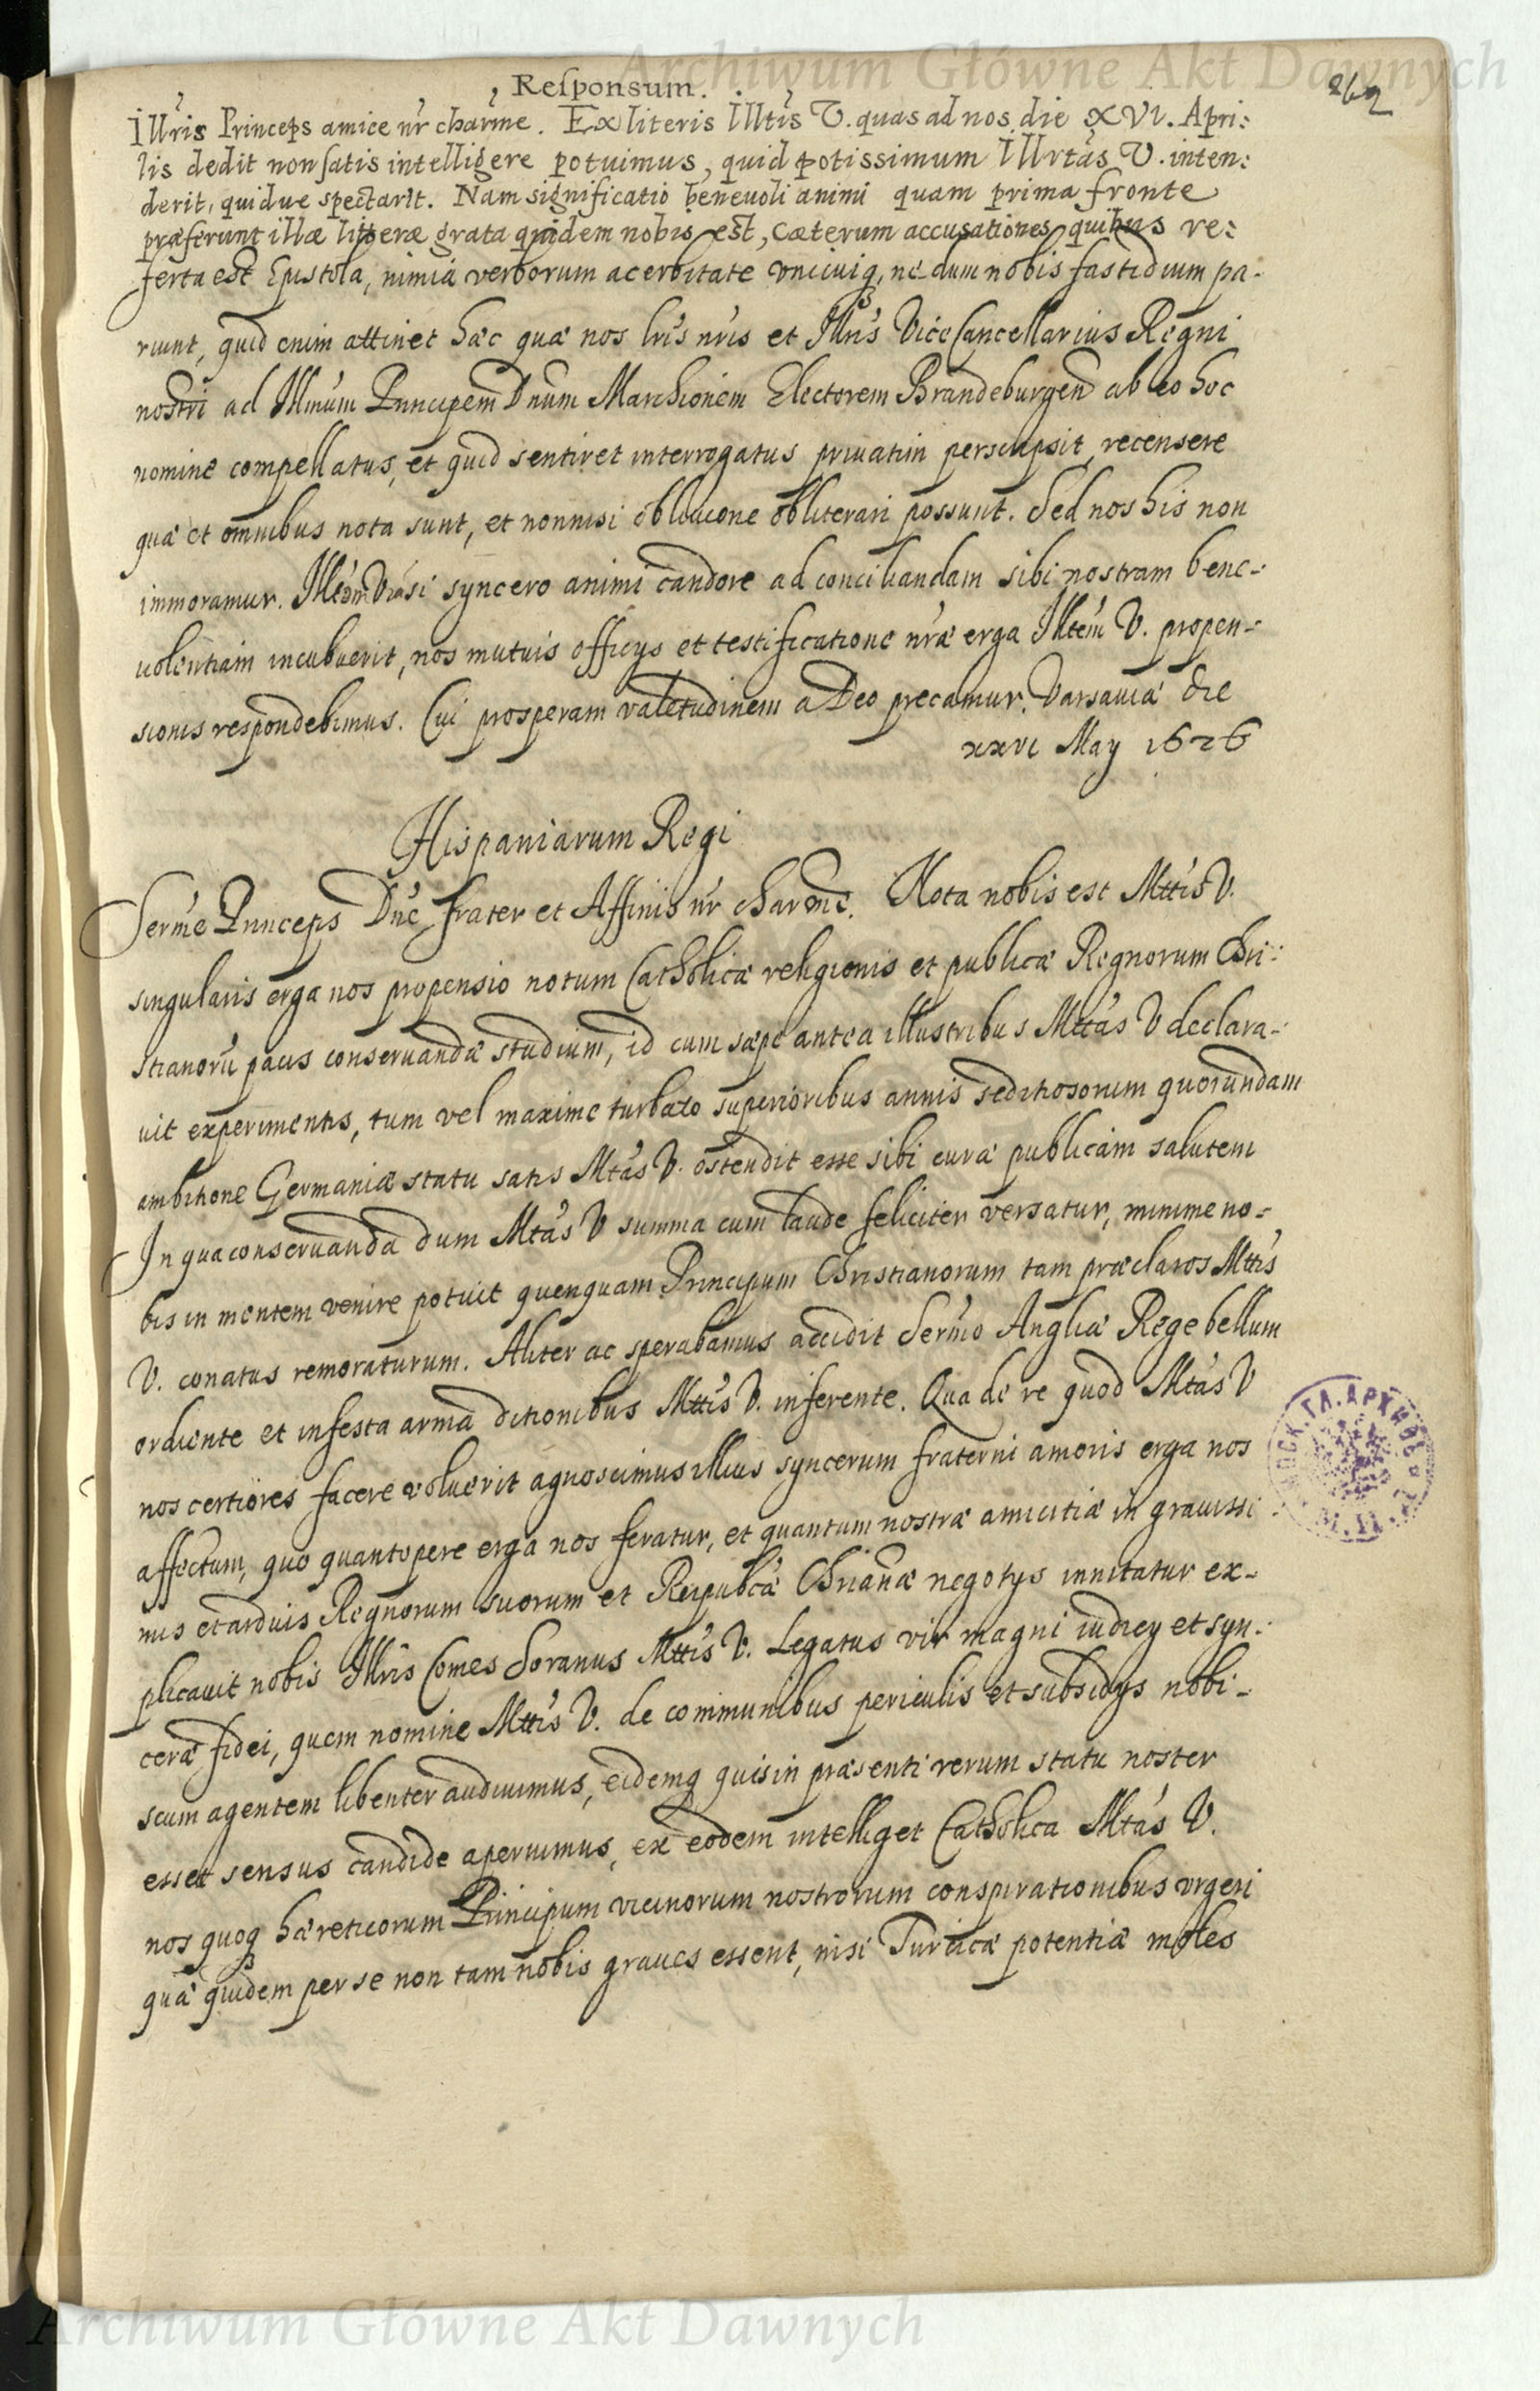 Archiwum Główne Akt Dawnych
262
Responsum.
Illris Princeps amice nr charme. Ex literis Illtis V. quas ad nos die XVI. Apri:
lis dedit non satis intelligere potuimus, quid potissimum Illrtas V. inten:
derit, quidue spectarit. Nam significatio beneuoli animi quam prima fronte
præferunt illæ litteræ grata quidem nobis est, cæterum accusationes quibus re:
ferta est Epistola, nimia verborum acerbitate vnicuiq, nedum nobis fastidium pa-
riunt, quid enim attinet hæc quæ nos lris nris et Illris ViceCancellarius Regni
nostri ad Illmum Principem Dnum Marchionem Electorem Brandeburgen ab eo hoc
nomine compellatus, et quid sentiret interrogatus priuatim perscripsit, recensere
quæ et omnibus nota sunt, et nonnisi obliuione obliterari possunt. Sed nos his non
immoramur. si syncero animi candore ad conciliandam sibi nostram bene-
uolentiam incubuerit, nos mutuis officijs et testificatione nræ erga Illtem V. propen-
sionis respondebimus. Cui prosperam valetudinem a Deo precamur. Varsauiæ die
xxvi May 1626
Hispaniarum Regi
Serme Princeps Dne frater et Affinis nr charme. Nota nobis est Mttis V.
singularis erga nos propensio notum Catholicæ religionis et publicæ Regnorum Chri:
stianorū pacis conseruandæ studium, id cum sæpe antea illustribus Mttas V declara-
uit experimentis, tum vel maxime turbato superioribus annis seditiosorum quorundam
ambitione Germaniæ statu satis Mtas V. ostendit esse sibi curæ publicam salutem
In qua conseruanda dum Mtas V summa cum laude feliciter versatur, minime no-
bis in mentem venire potuit quenquam Principum Christianorum tam præclaros Mttis
V. conatus remoraturum. Aliter ac sperabamus accidit Sermo Angliæ Rege bellum
ordiente et infesta arma ditionibus Mttis V. inferente. Qua de re quod Mtas V
nos certiores facere voluerit agnoscimus illius syncerum fraterni amoris erga nos
affectum, quo quantopere erga nos feratur, et quantum nostræ amicitiæ in grauissi:
mis et arduis Regnorum suorum et Reipubcæ Chrianæ negotijs innitatur ex-
plicauit nobis Illris Comes Soranus Mttis V. Legatus vir magni iudicij et syn-
ceræ fidei, quem nomine Mttis V. de communibus periculis et subsidijs nobi-
scum agentem libenter audiuimus, eidemq quis in præsenti rerum statu noster
esset sensus candide aperuimus, ex eodem intelliget Catholica Mtas V.
nos quoq hæreticorum Principum vicinorum nostrorum conspirationibus vrgeri
quæ quidem per se non tam nobis graues essent, nisi Turcicæ potentiæ moles
Archiwum Główne Akt Dawnych